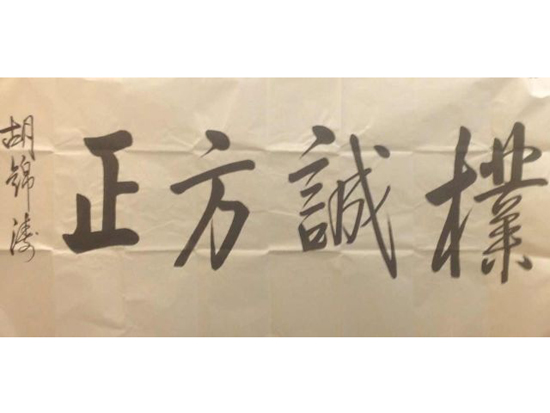 樸誠方正
胡錦濤